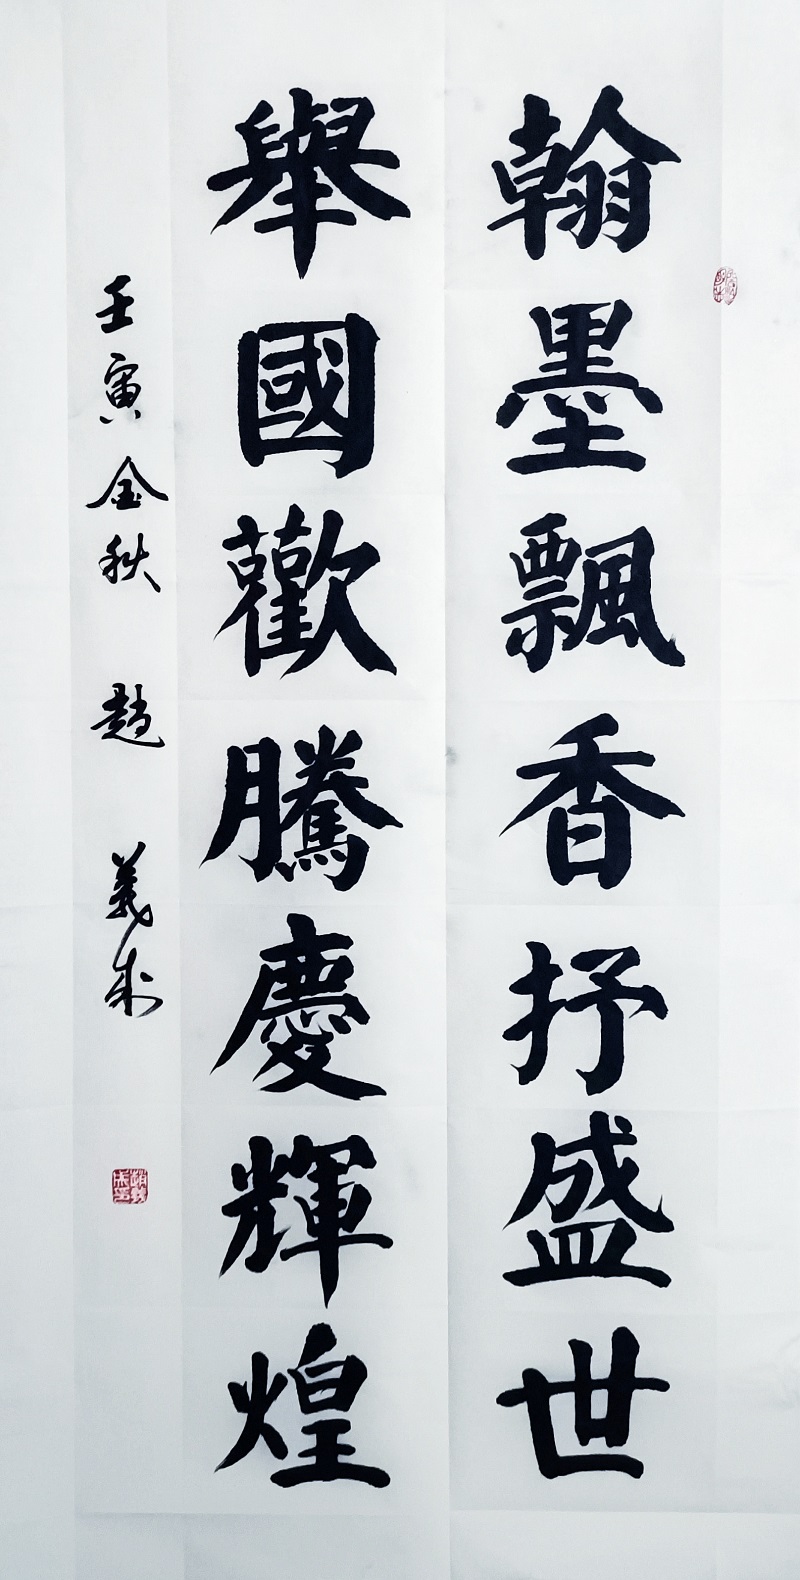 翰墨飄香抒盛世
舉國歡騰慶輝煌
壬寅金秋 趙義成